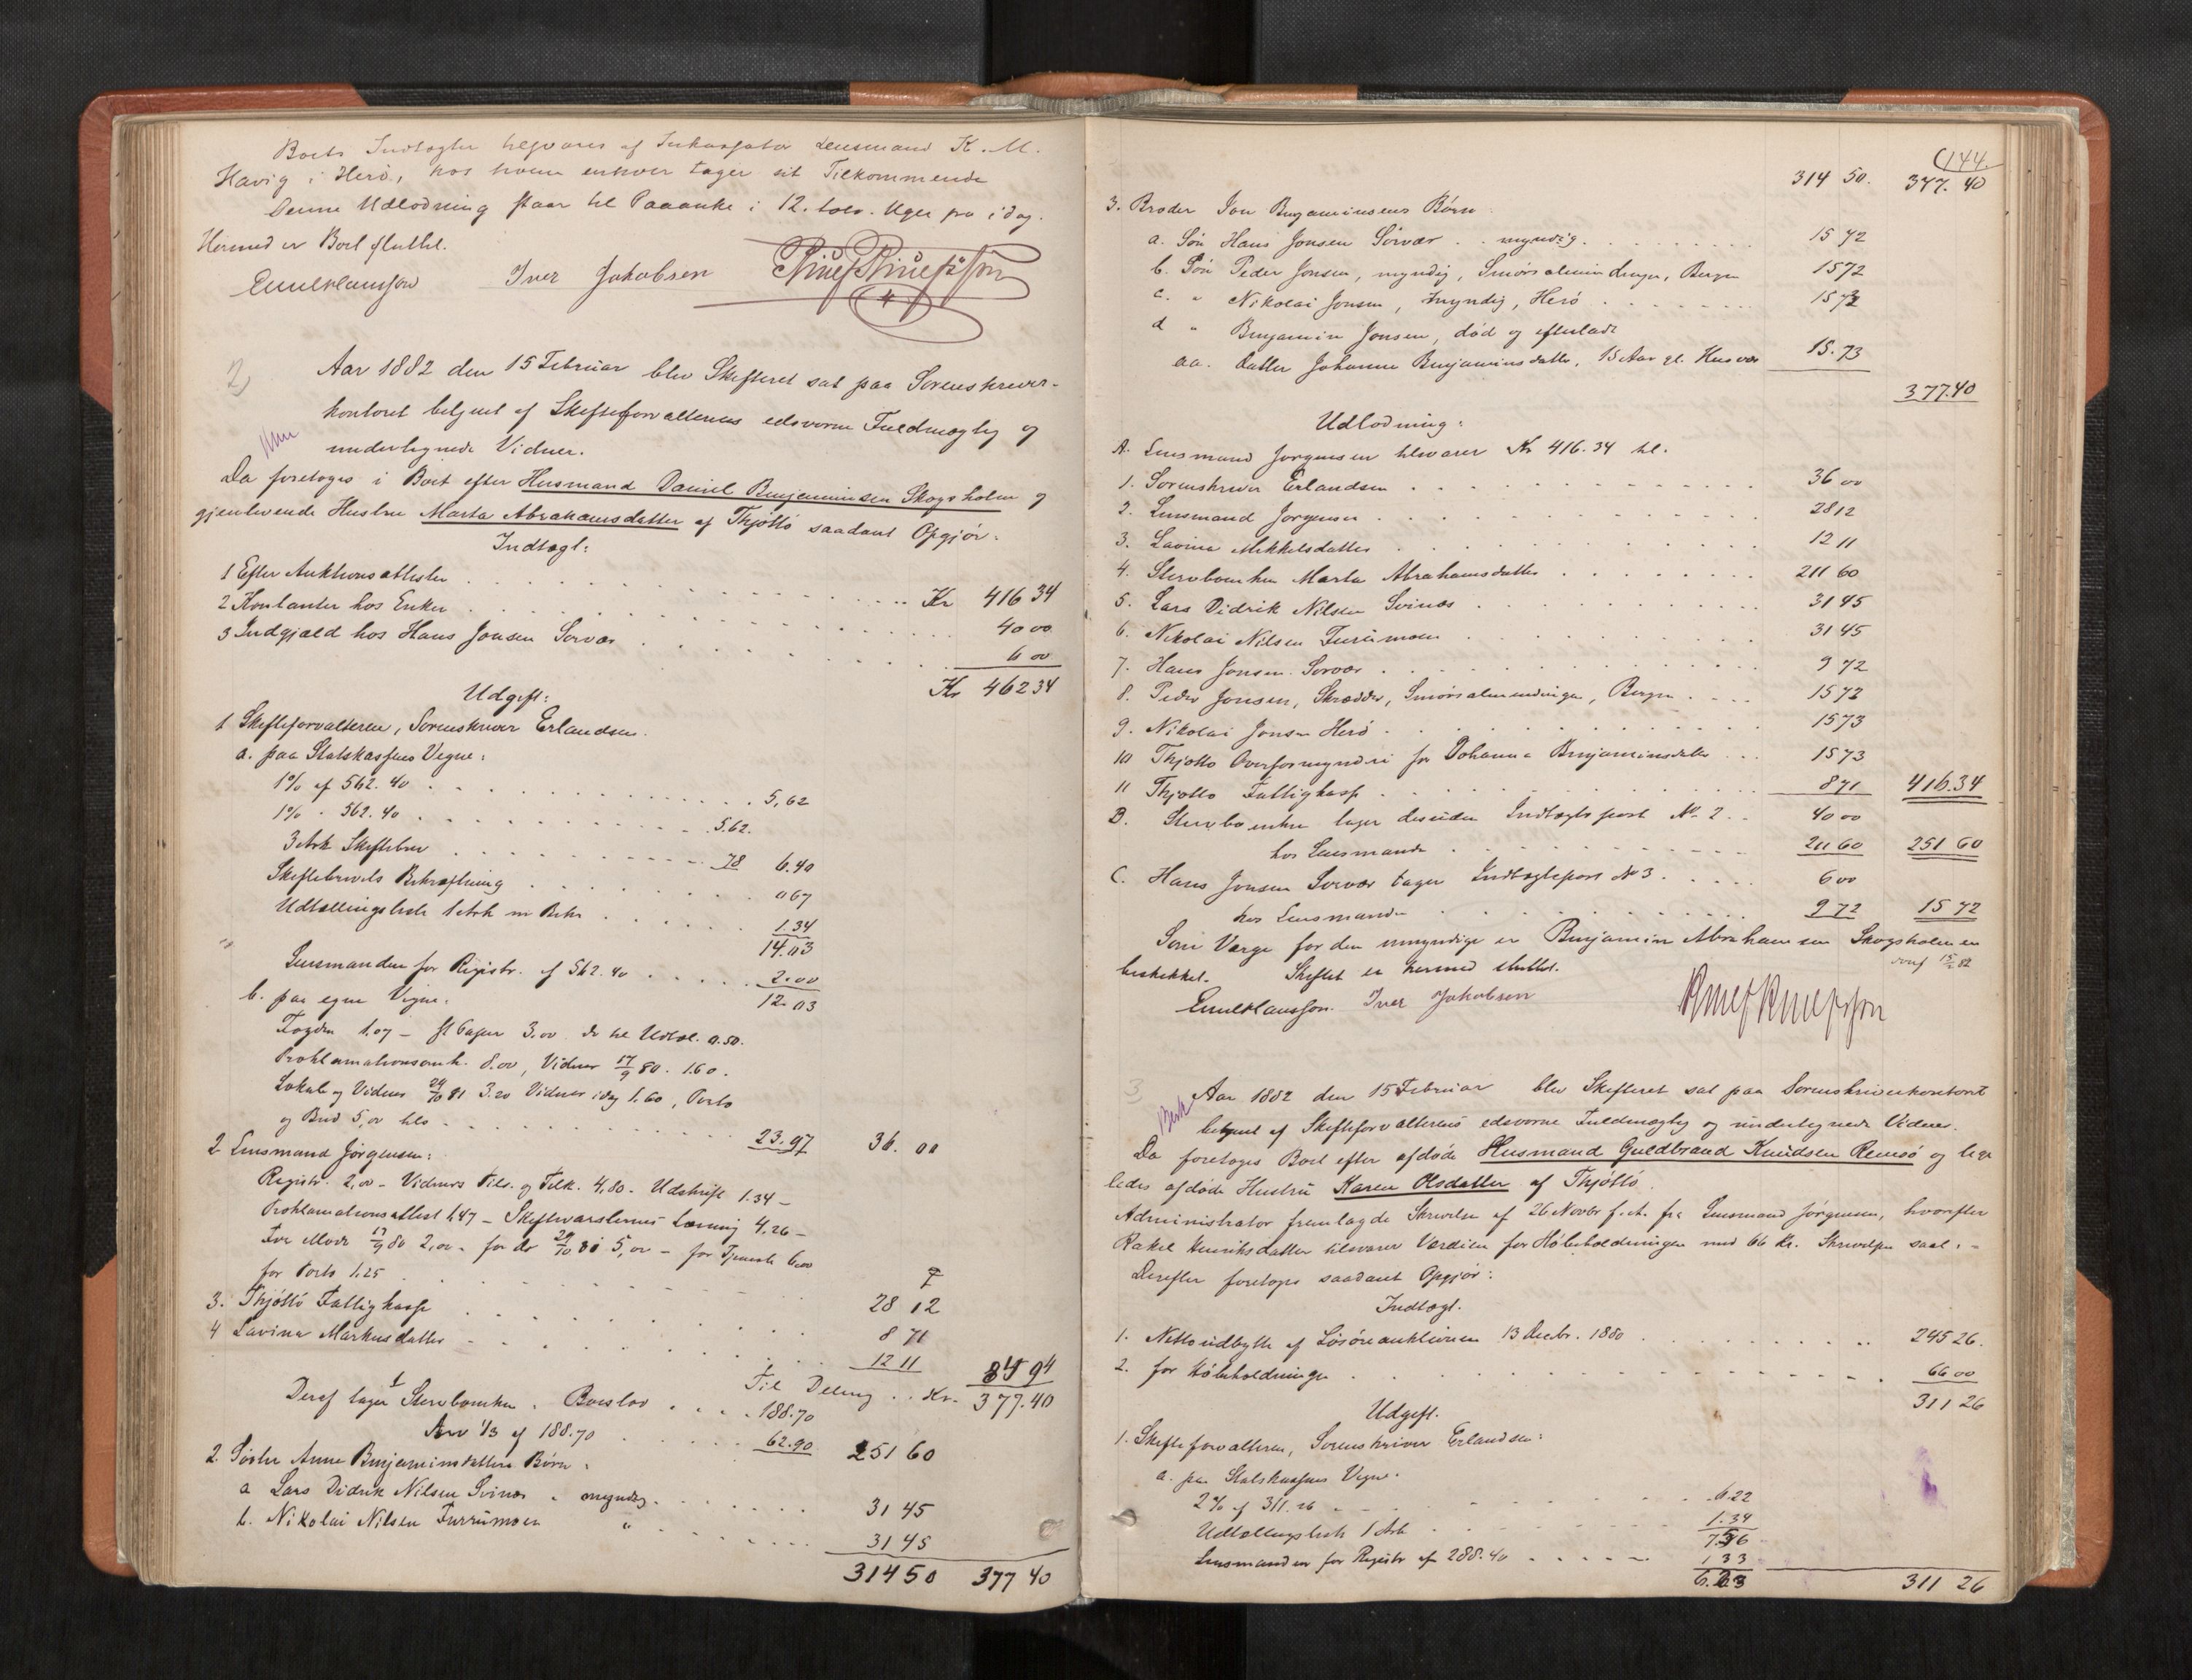 Boets Indtægter tilsvares af Inkassator Lensmand K. M.
Havig i Herø, hos hvem enhver tager sit Tilkommende
Denne Udlodning staar til Paaanke i 12. tolv. Uger fra idag.
Hermed er Boet sluttet.
Iver Jakobsen
2)
Aar 1882 den 15 Februar blev Skifteret sat paa Sorenskriver-
kontoret betjent af Skifteforvalterens edsvorne Fuldmægtig og
undertegnede Vidner.
Da foretoges i Boet efter Husmand Daniel Benjaminsen Skogsholm og
gjenlevende Hustru Marta Abrahamsdatter af Thjøttø saadant Opgjør:
Indtægt:
1 Efter Auktionsattester . . . Kr 416 34
2 Kontanter hos Enken . . . 40 00
3 Indgjæld hos Hans Jonsen Sørvær . . . 6 00
Kr 462 34
Udgift:
1 Skifteforvalteren, Sorenskriver Erlandsen.
a. paa Statskassens Vegne:
1% af 562.40 . . . 5,62
1% - 562.40 . . . 5.62.
3 Ark Skiftebrev . . . 78 6.40
Skiftebrevets Bekræftning . . . 0 67
Udtællingsliste 1 Ark m Bekr . . . 1.34
14.03
Lensmanden for Registr. af 562.40 . . . 2.00
12.03
b. paa egne Vegne.
Fogden 1.07 - st Papir 3.00 do til Udtæl. 0.50.
Proklamationsomk. 8.00, Vidner 17/9 80. 1.60.
Lokale og Vidner 29/10 81 3.20 Vidner idag 1.60, Porto
og Bud 5,00 tils . . . 23.97 36. 00
2 Lensmand Jørgensen:
Registr. 2,00 - Vidners Tils. og Tilk. 4,80 - Udskrift 1.34 -
Proklamationsattest 1,47 - Skiftevarslernes Læsning 4,26 -
For Møde 17/9 80 2,00 - for do 29/10 81 5,00 - for Tjeneste 6,00
for Porto 1.25 . . . 28 12
3. Thjøttø Fattigkasse . . . 8 71
4 Lavina Markusdatter . . . 12 11 84 94
Til Deling . . Kr. 377.40
Deraf tager 1 Stervboenken. Boeslod . . . 188.70
Arv 1/3 af 188.70 . . . 62.90 251 60
2. Søster Anne Benjaminsdatters Børn:
a Lars Didrik Nilsen Svinæs . myndig . . . 31 45
b. Nikolai Nilsen Furrumoen " . . . 31 45
314 50 377 40
144.
314 50. 377. 40
3. Broder Jon Benjaminsens Børn
a. Søn Hans Jonsen Sørvær . . myndig . . . 15 72
b. Søn Peder Jonsen, myndig, Smørsalmindingen, Bergen 15 72
c. " Nikolai Jonsen, myndig, Herø . . . 15 73
d " Benjamin Jonsen, død og efterladt
aa. Datter Johanna Benjaminsdatter, 15 Aar gl. Husvær 15.73
377.40
Udlodning:
A. Lensmand Jørgensen tilsvarer Kr 416.34 til.
1. Sorenskriver Erlandsen . . . 36 00
2. Lensmand Jørgensen . . . 28 12
3. Lavina Mikkelsdatter . . . 12 11
4. Stervboenken Marta Abrahamsdatter . . . 211 60
5. Lars Didrik Nilsen Svinæs . . . 31 45
6. Nikolai Nilsen Furumoen . . . 31 45
7. Hans Jonsen Sørvær . . . 9 72
8. Peder Jonsen, Skrædder, Smørsalmendingen, Bergen . . . 15 72
9. Nikolai Jonsen Herø . . . 15 73
10 Thjøttø Overformynderi for Johanna Benjaminsdatter . . . 15 73
11 Thjøttø Fattigkasse . . . 8 71 416.34
B. Stervboenken tager desuden Indtægtspost No 2 . . 40 00
hos Lensmanden . . . 211 60 251 60
C. Hans Jonsen Sørvær tager Indtægtspost No 3 . . . 6 00
hos Lensmanden . . . 9 72 15 72
Som Værge for den umyndige er Benjamin Abrahamsen Skogsholmen
beskikket. Skiftet er hermed sluttet.
Iver Jakobsen
3
Aar 1882 den 15 Februar blev Skifteret sat paa Sorenskriverkontoret
betjent af Skifteforvalterens edsvorne Fuldmægtig og undertegnede Vidner.
Da foretoges Boet efter afdøde Husmand Guldbrand Knudsen Remsø og lige
ledes afdøde Hustru Karen Olsdatter af Thjøttø.
Administrator fremlagde Skrivelse af 26 Novbr f. A. fra Lensmand Jørgensen, hvorefter
Rakel Henriksdatter tilsvarer Værdien for Høbeholdningen med 66 Kr. Skrivelsen saal. -
Derefter foretoges saadant Opgjør:
Indtægt.
1. Nettoudbytte af Løsøreauktionen 13 Decbr. 1880 . . . 245 26.
2. for Høbeholdningen . . . 66 00
311 26
Udgift.
1. Skifteforvalteren, Sorenskriver Erlandsen:
a. paa Statskassens Vegne.
2% af 311.26 . . . 6.22
Udtællingsliste 1 Ark . . . 1.34
7.56
Lensmanden for Registr af 288.40 . . . 1 33
6.23 311 26